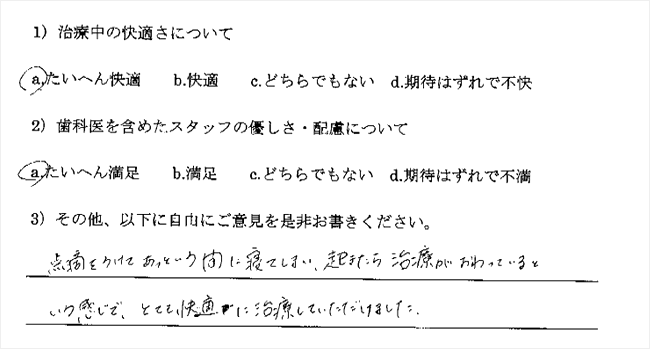 1) 治療中の快適さについて
a.たいへん快適 b.快適 c.どちらでもない d.期待はずれで不快
2) 歯科医を含めたスタッフの優しさ・配慮について
a.たいへん満足 b.満足 c.どちらでもない d.期待はずれで不満
3) その他、以下に自由にご意見を是非お書きください。
点滴をうけてあっという間に寝てしまい、起きたら治療がおわっていると
いう感じで、とても快適に治療していただけました。